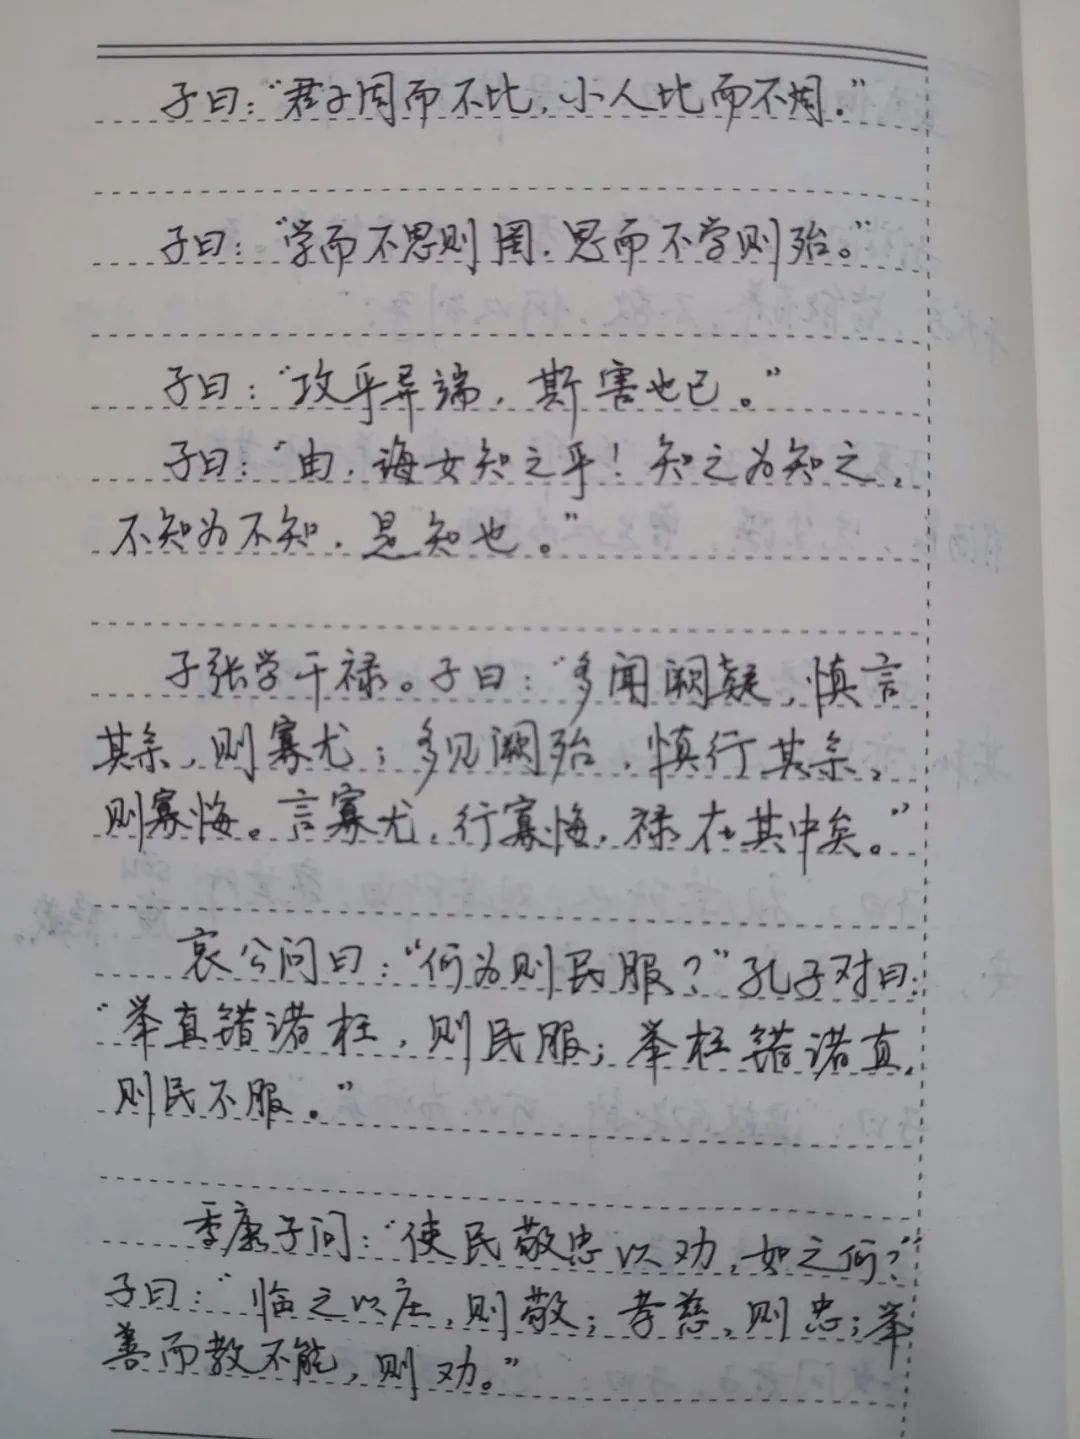 子曰：“君子周而不比，小人比而不周。”
子曰：“学而不思则罔，思而不学则殆。”
子曰：“攻乎异端，斯害也已。”
子曰：“由，诲女知之乎！知之为知之，
不知为不知，是知也。”
子张学干禄。子曰：“多闻阙疑，慎言
其余，则寡尤；多见阙殆，慎行其余，
则寡悔。言寡尤，行寡悔，禄在其中矣。”
哀公问曰：“何为则民服？”孔子对曰：
“举直错诸枉，则民服；举枉错诸直，
则民不服。”
季康子问：“使民敬忠以劝，如之何？”
子曰：“临之以庄，则敬；孝慈，则忠；举
善而教不能，则劝。”